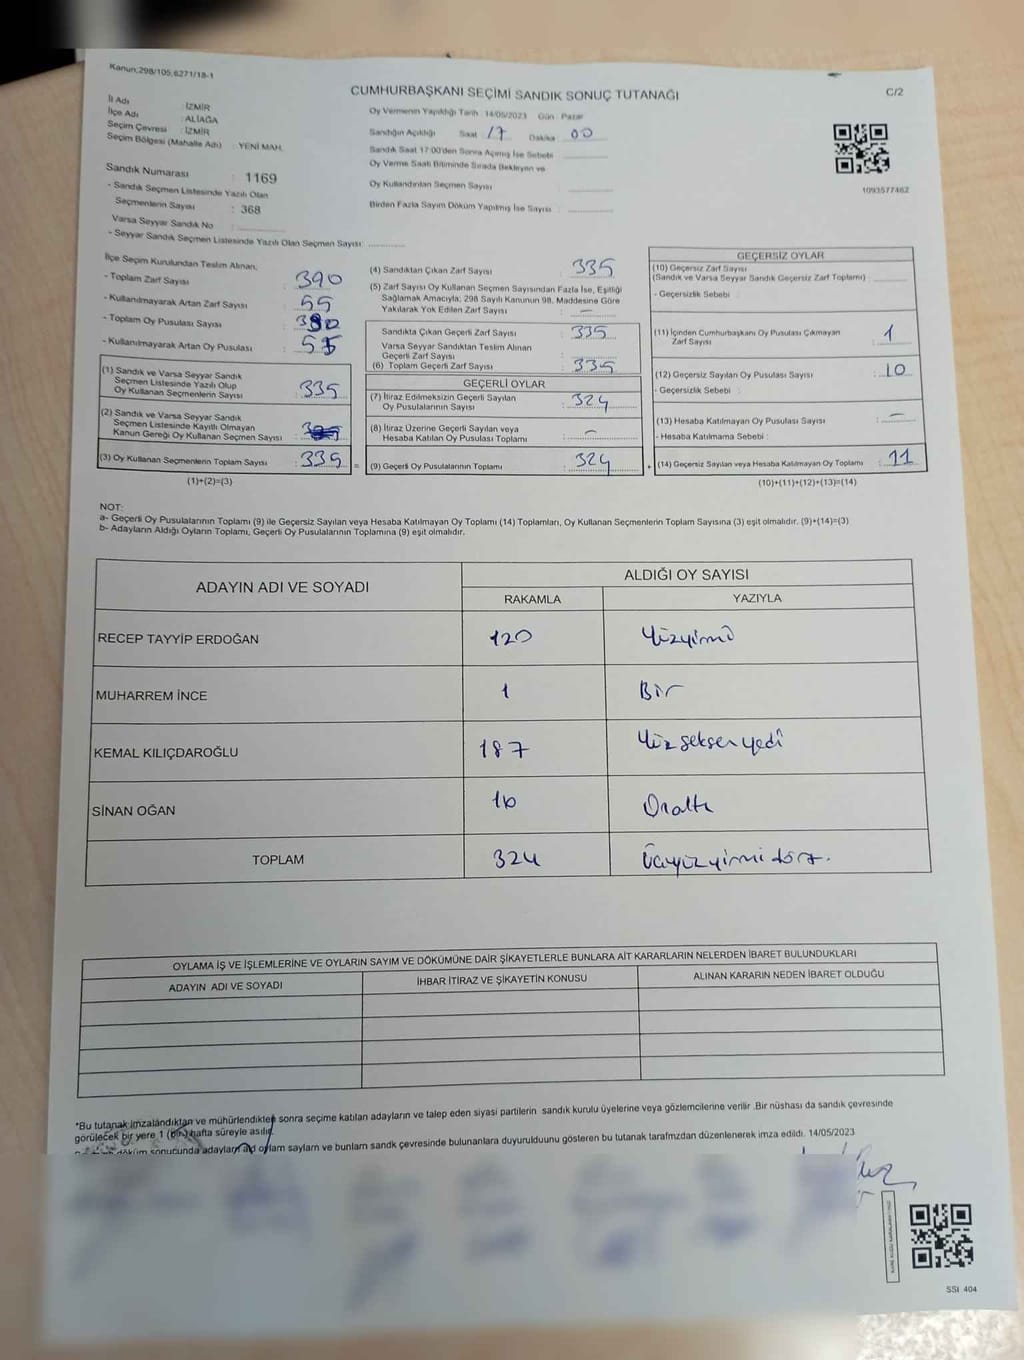 Kanun;298/105,6271/18-1
CUMHURBAŞKANI SEÇİMİ SANDIK SONUÇ TUTANAĞI
C/2
İl Adı : İZMİR
İlçe Adı : ALİAĞA
Seçim Çevresi : İZMİR
Seçim Bölgesi (Mahalle Adı) : YENİ MAH.
Oy Vermenin Yapıldığı Tarih 14/05/2023 Gün Pazar
Sandığın Açıldığı Saat 17 Dakika 00
Sandık Saat 17:00'den Sonra Açımış İse Sebebi
Oy Verme Saati Bitiminde Sırada Bekleyen ve
Oy Kullandırılan Seçmen Sayısı
Birden Fazla Sayım Döküm Yapılmış İse Sayısı
1093577462
Sandık Numarası : 1169
- Sandık Seçmen Listesinde Yazılı Olan
Seçmenlerin Sayısı : 368
Varsa Seyyar Sandık No :
- Seyyar Sandık Seçmen Listesinde Yazılı Olan Seçmen Sayısı:
İlçe Seçim Kurulundan Teslim Alınan;
- Toplam Zarf Sayısı : 390
- Kullanılmayarak Artan Zarf Sayısı : 55
- Toplam Oy Pusulası Sayısı : 390
- Kullanılmayarak Artan Oy Pusulası : 55
(1) Sandık ve Varsa Seyyar Sandık
Seçmen Listesinde Yazılı Olup
Oy Kullanan Seçmenlerin Sayısı : 335
(2) Sandık ve Varsa Seyyar Sandık
Seçmen Listesinde Kayıtlı Olmayan
Kanun Gereği Oy Kullanan Seçmen Sayısı :
(3) Oy Kullanan Seçmenlerin Toplam Sayısı : 335 =
(1)+(2)=(3)
(4) Sandıktan Çıkan Zarf Sayısı : 335
(5) Zarf Sayısı Oy Kullanan Seçmen Sayısından Fazla İse, Eşitliği
Sağlamak Amacıyla; 298 Sayılı Kanunun 98. Maddesine Göre
Yakılarak Yok Edilen Zarf Sayısı : -
Sandıkta Çıkan Geçerli Zarf Sayısı : 335
Varsa Seyyar Sandıktan Teslim Alınan
Geçerli Zarf Sayısı :
(6) Toplam Geçerli Zarf Sayısı : 335
GEÇERLİ OYLAR
(7) İtiraz Edilmeksizin Geçerli Sayılan
Oy Pusulalarının Sayısı : 324
(8) İtiraz Üzerine Geçerli Sayılan veya
Hesaba Katılan Oy Pusulası Toplamı : -
(9) Geçerli Oy Pusulalarının Toplamı : 324 +
GEÇERSİZ OYLAR
(10) Geçersiz Zarf Sayısı
(Sandık ve Varsa Seyyar Sandık Geçersiz Zarf Toplamı) :
- Geçersizlik Sebebi :
(11) İçinden Cumhurbaşkanı Oy Pusulası Çıkmayan
Zarf Sayısı : 1
(12) Geçersiz Sayılan Oy Pusulası Sayısı : 10
- Geçersizlik Sebebi :
(13) Hesaba Katılmayan Oy Pusulası Sayısı : -
- Hesaba Katılmama Sebebi :
(14) Geçersiz Sayılan veya Hesaba Katılmayan Oy Toplamı : 11
(10)+(11)+(12)+(13)=(14)
NOT:
a- Geçerli Oy Pusulalarının Toplamı (9) ile Geçersiz Sayılan veya Hesaba Katılmayan Oy Toplamı (14) Toplamları, Oy Kullanan Seçmenlerin Toplam Sayısına (3) eşit olmalıdır. (9)+(14)=(3)
b- Adayların Aldığı Oyların Toplamı, Geçerli Oy Pusulalarının Toplamına (9) eşit olmalıdır.
ADAYIN ADI VE SOYADI
ALDIĞI OY SAYISI
RAKAMLA YAZIYLA
RECEP TAYYİP ERDOĞAN 120 Yüzyirmi
MUHARREM İNCE 1 Bir
KEMAL KILIÇDAROĞLU 187 Yüz seksen yedi
SİNAN OĞAN 16 Onaltı
TOPLAM 324 Üçyüzyirmi dört.
OYLAMA İŞ VE İŞLEMLERİNE VE OYLARIN SAYIM VE DÖKÜMÜNE DAİR ŞİKAYETLERLE BUNLARA AİT KARARLARIN NELERDEN İBARET BULUNDUKLARI
ADAYIN ADI VE SOYADI İHBAR İTİRAZ VE ŞİKAYETİN KONUSU ALINAN KARARIN NEDEN İBARET OLDUĞU
*Bu tutanak imzalandıktan ve mühürlendikten sonra seçime katılan adayların ve talep eden siyasi partilerin sandık kurulu üyelerine veya gözlemcilerine verilir .Bir nüshası da sandık çevresinde
görülecek bir yere 1 (bir) hafta süreyle asılır.
döküm sonucunda adayların oyların sayları ve bunların sandık çevresinde bulunanlara duyurulduunu gösteren bu tutanak tarafmzdan düzenlenerek imza edildi. 14/05/2023
SSI 404